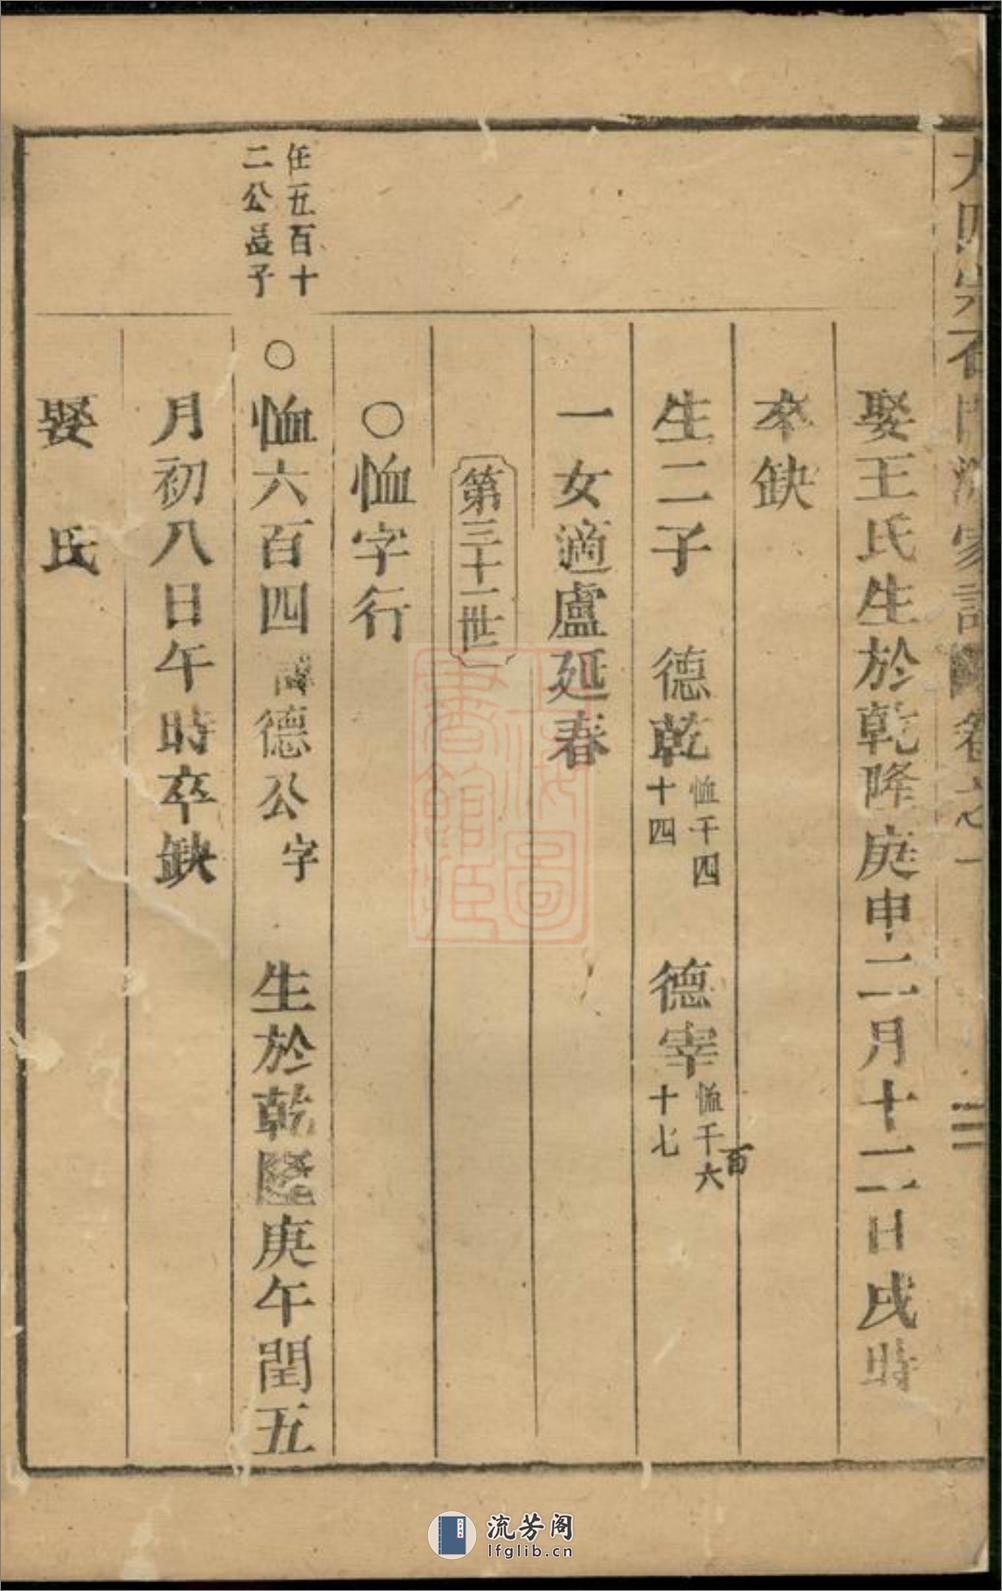 娶王氏生於乾隆庚申二月十二日戌時
卒缺
生二子　德乾恤千四十四　德宰恤千六百十七
一女適盧延春
第三十一世
○恤字行
任五百十
二公長子
○恤六百四　德公字　生於乾隆庚午閏五
月初八日午時卒缺
娶　氏
流芳阁
lfglib.cn